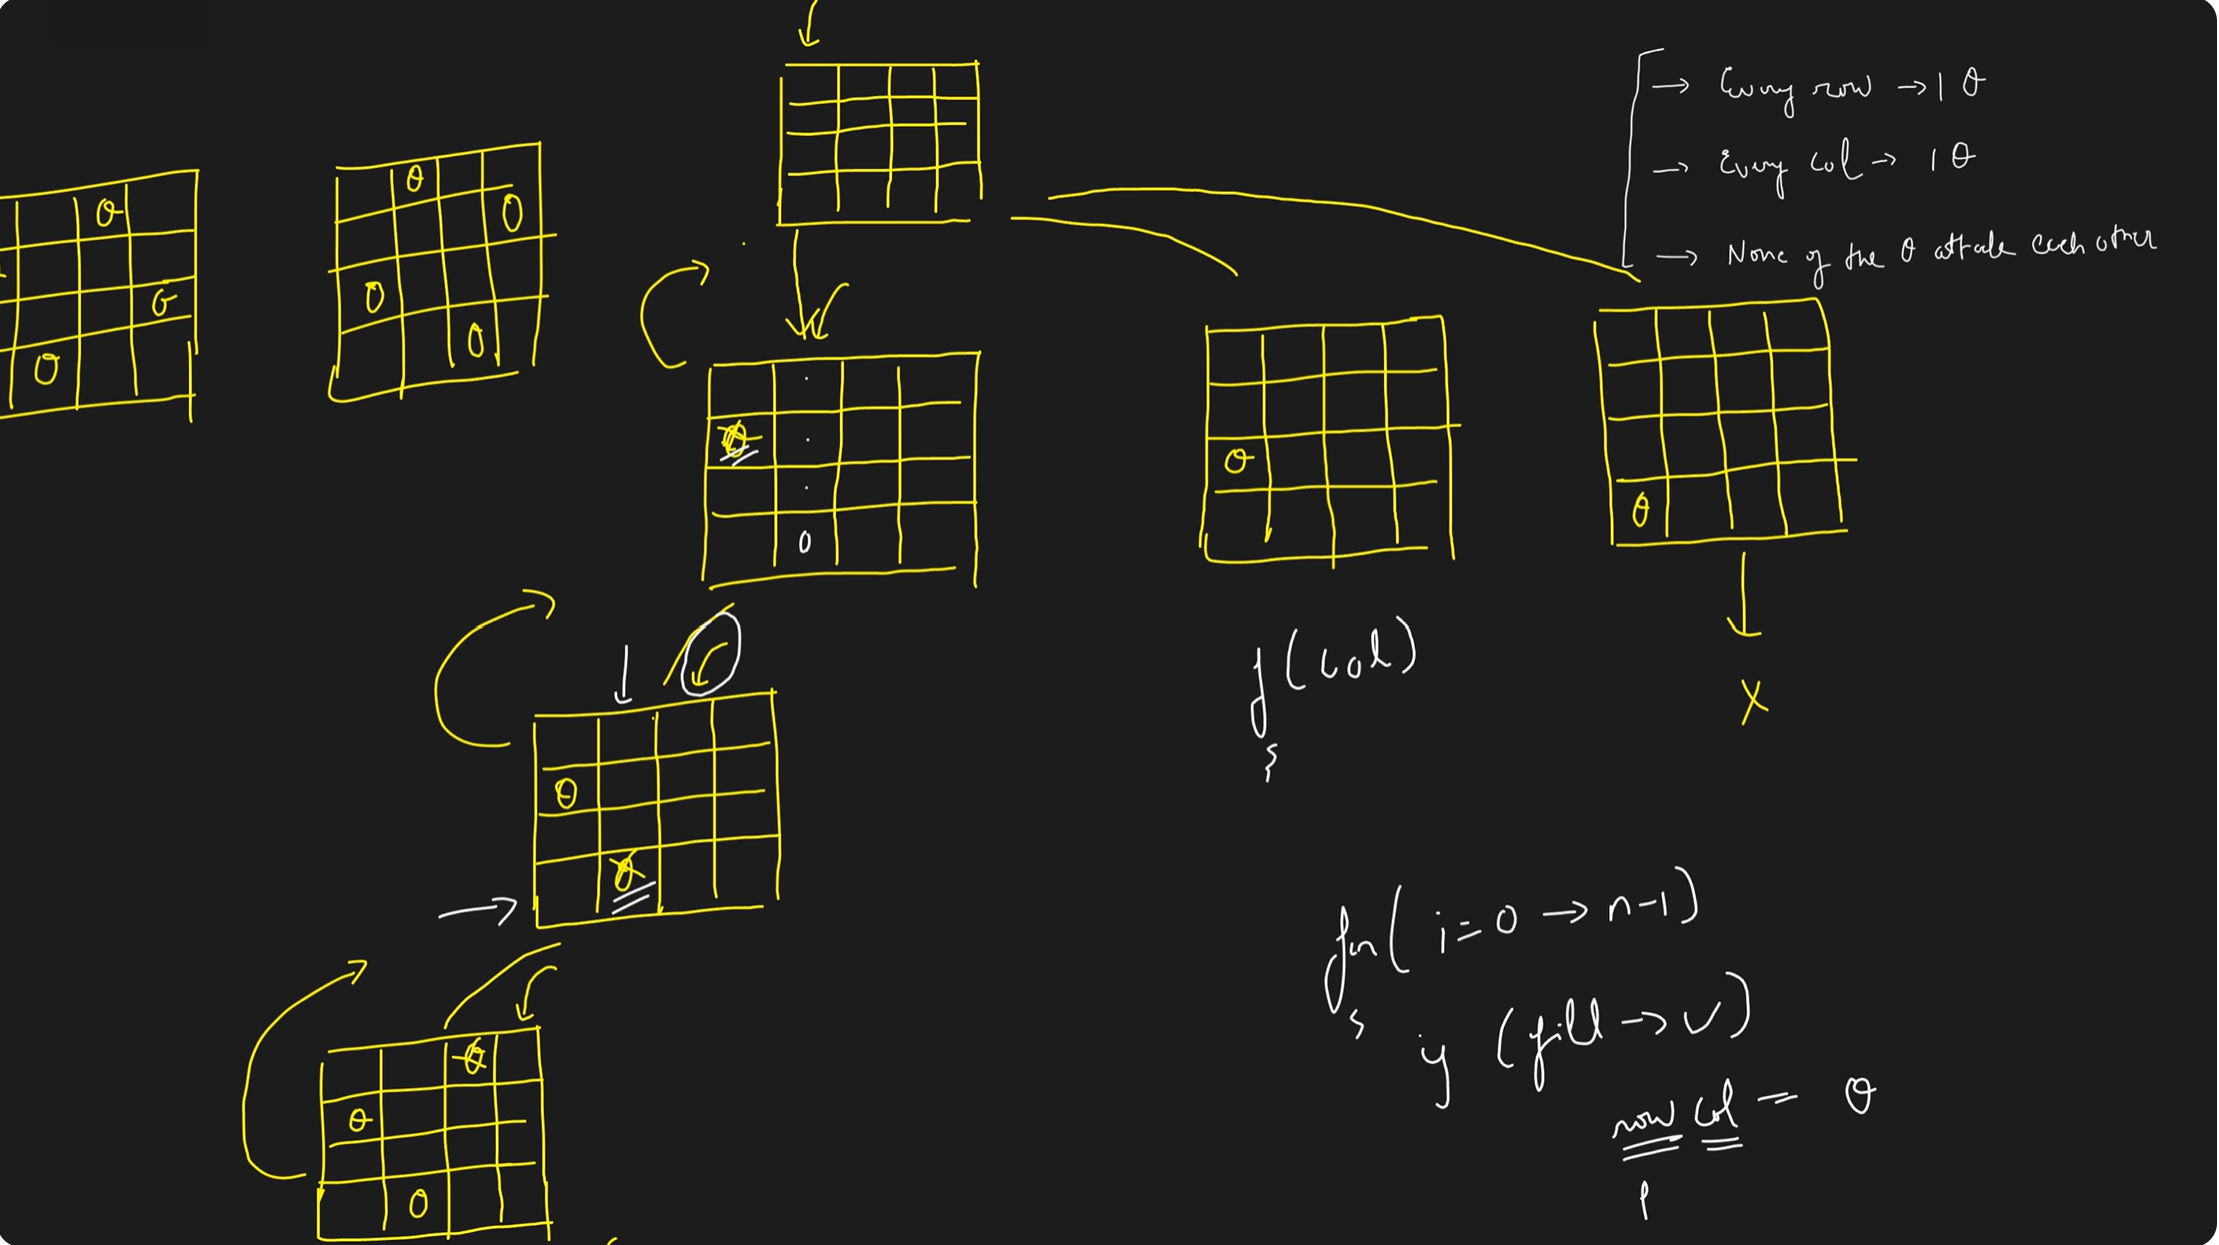 → Every row → 1 Q
→ Every col → 1 Q
→ None of the Q attack each other
Q
Q
Q
Q
Q
Q
Q
Q
Q
Q
Q
Q
X
f(col)
{
Q
Q
for( i = 0 → n-1)
{
if (fill → ✓)
row col = Q
Q
Q
Q